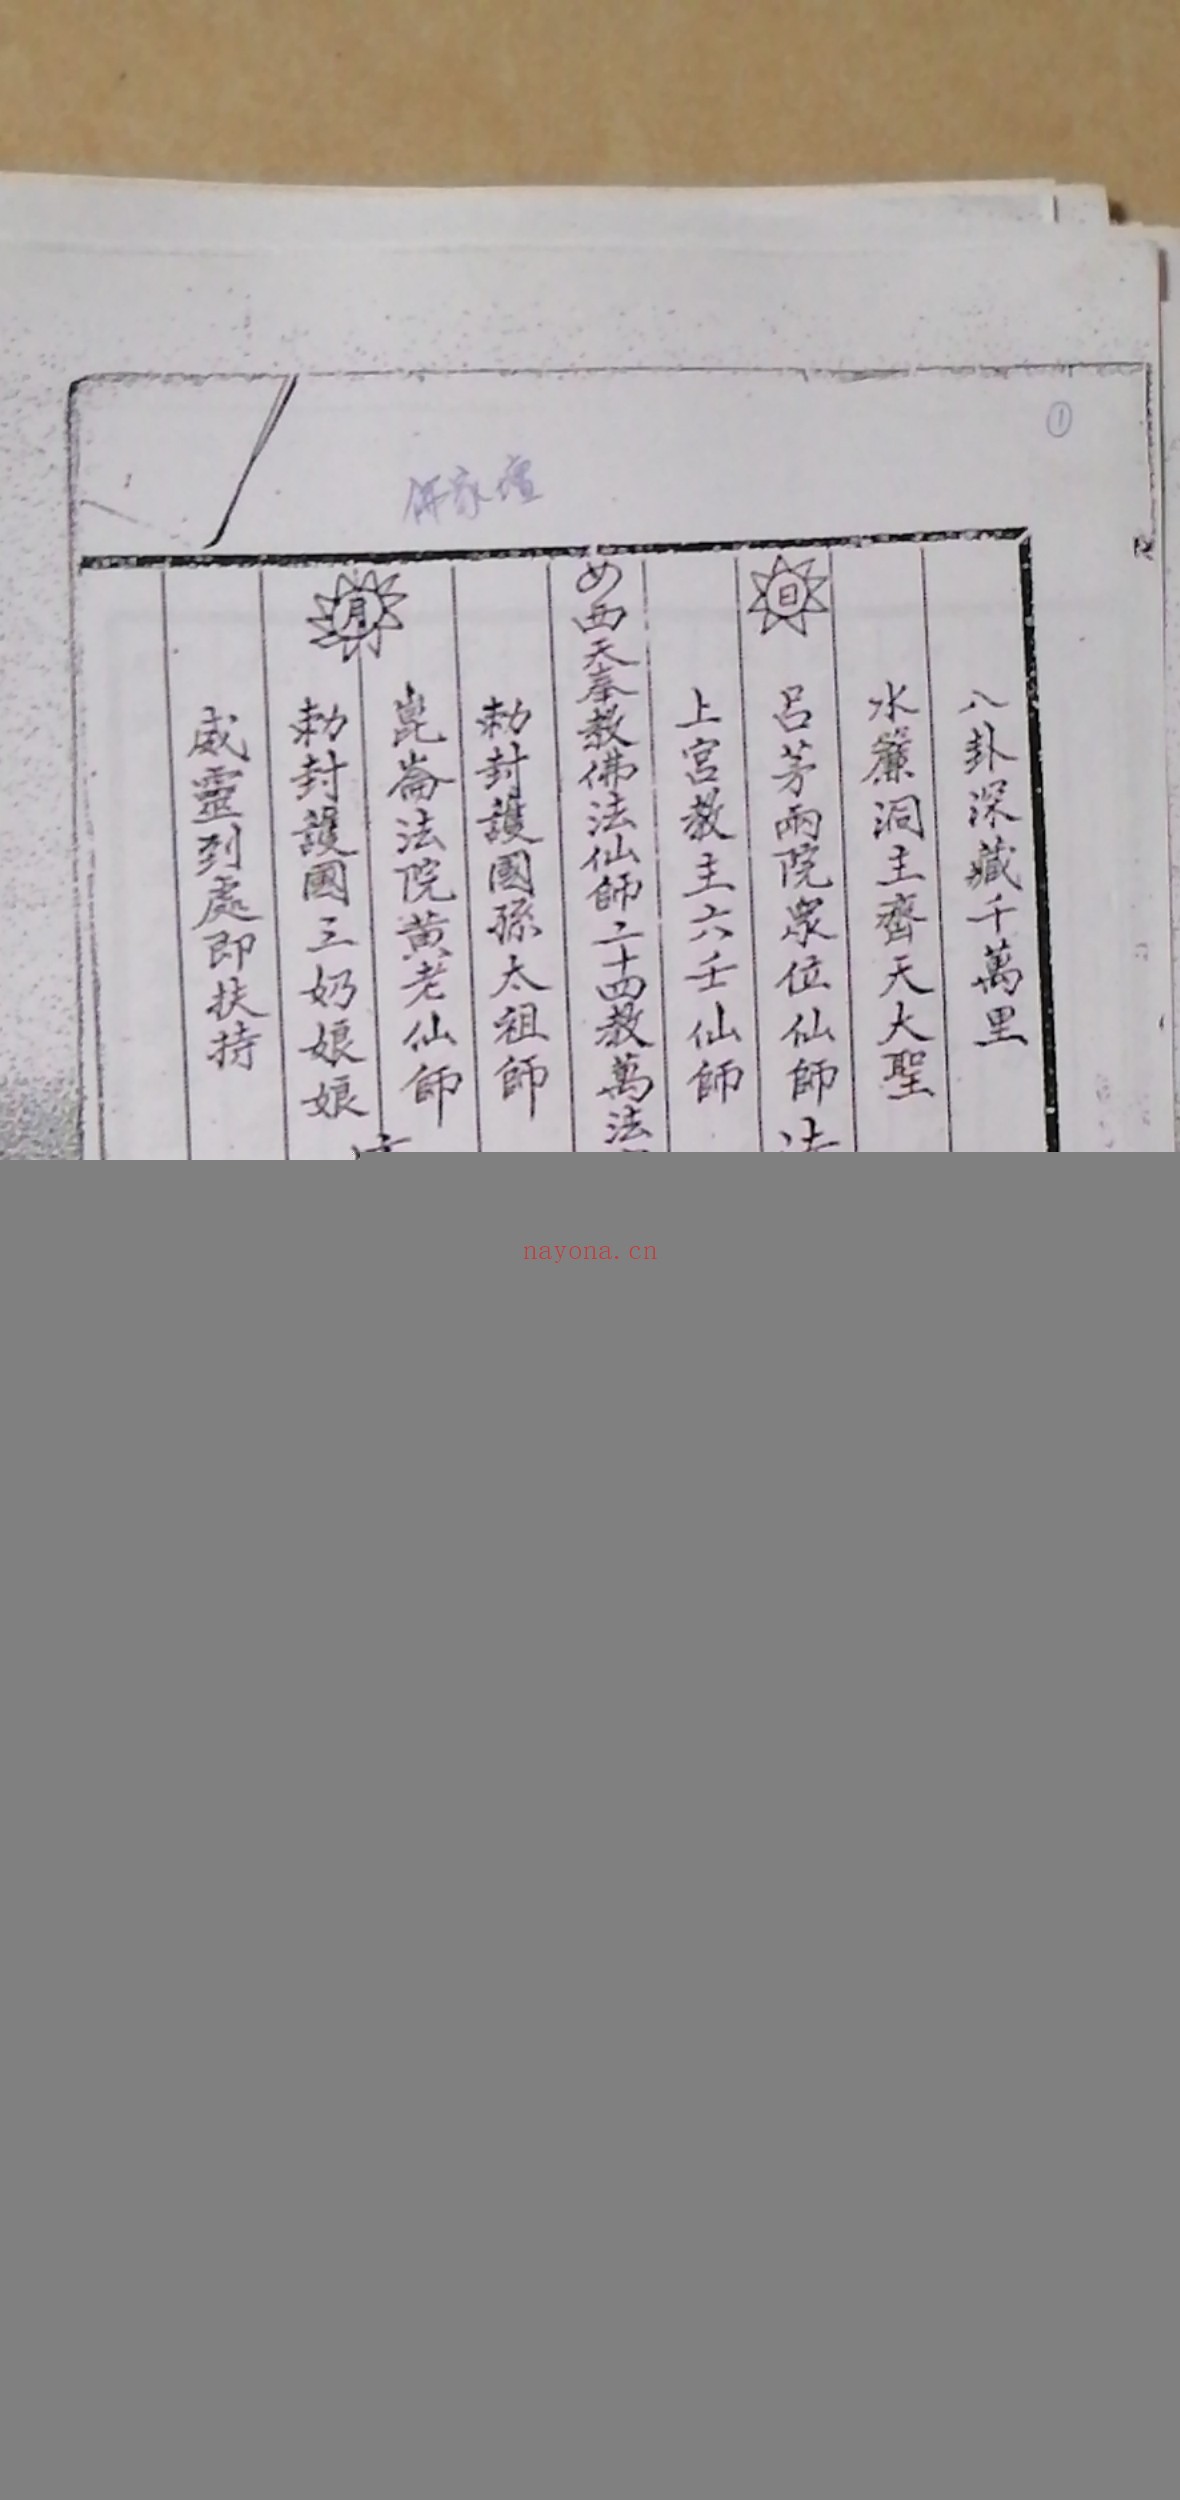 ①
佛家壇
八卦深藏千萬里
水簾洞主齊天大聖
日
呂茅兩院衆位仙師 法
上宮教主六壬仙師
西天奉教佛法仙師二十四教萬法
勅封護國孫太祖師
崑崙法院黃老仙師
月
勅封護國三奶娘娘
威靈到處即扶持
nayona.cn